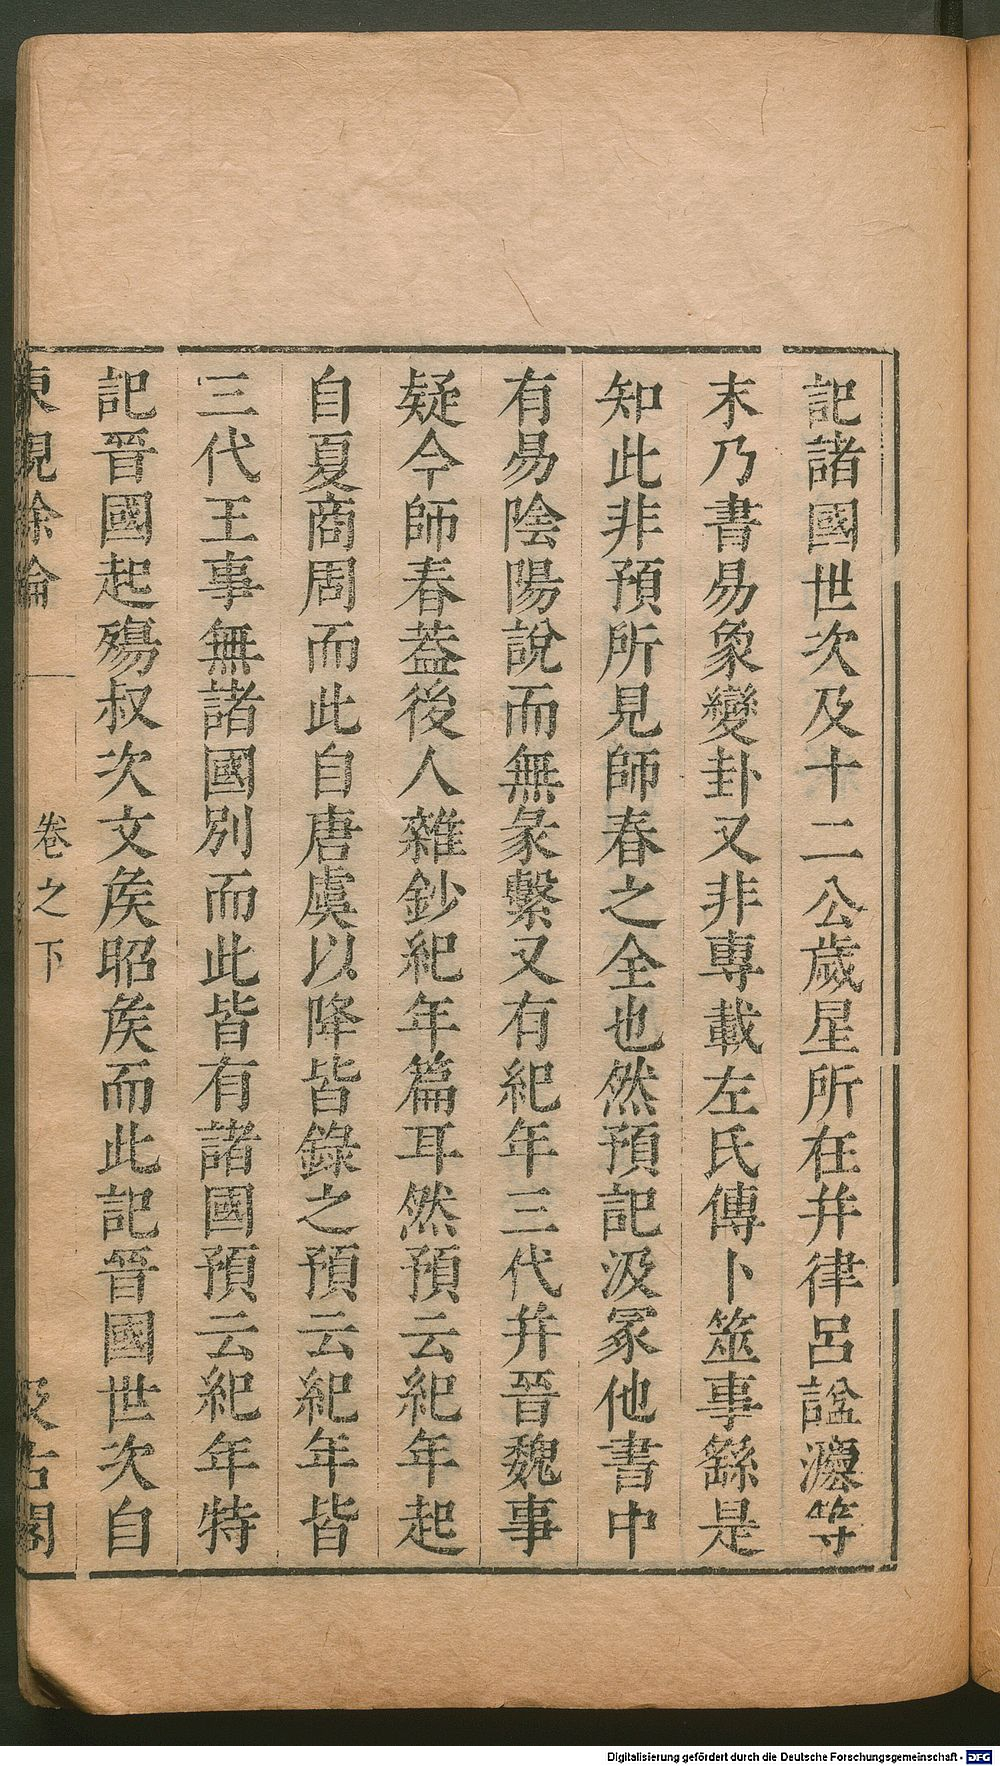 記諸國世次及十二公歲星所在并律呂諡灋等
末乃書易象變卦又非專載左氏傳卜筮事繇是
知此非預所見師春之全也然預記汲冢他書中
有易陰陽說而無彖繫又有紀年三代并晉魏事
疑今師春葢後人雜鈔紀年篇耳然預云紀年起
自夏商周而此自唐虞以降皆錄之預云紀年皆
三代王事無諸國別而此皆有諸國預云紀年特
記晉國起殤叔次文矦昭矦而此記晉國世次自
東觀餘論 卷之下 汲古閣
Digitalisierung gefördert durch die Deutsche Forschungsgemeinschaft - DFG